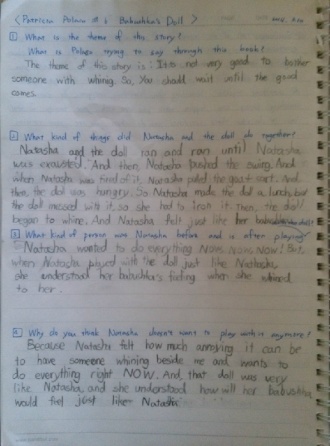 < Patricia Polacco's Babushka's Doll >
1 What is the theme of this story?
What is Polacco trying to say through this book?
The theme of this story is: It is not very good to bother
someone with whining. So, You should wait until the good
comes.
2 What kind of things did Natasha and the doll do together?
Natasha and the doll ran and ran until Natasha
was exausted. And then, Natasha pushed the swing. And
when Natasha was tired of it, Natasha pulled the goat cart. And
then, the doll was hungry. So Natasha made the doll a lunch, but
the doll messed with it, so she had to iron it. Then, the doll
began to whine. And Natasha felt just like her babushka
3 What kind of person was Natasha before and is after playing
Natasha wanted to do everything NOW, NOW, NOW! But,
when Natasha played with the doll just like Natasha,
she understood her babushka's feeling when she whined
to her.
4 Why do you think Natasha doesn't want to play with it anymore?
Because Natasha felt how much annoying it can be
to have someone whining beside me and wants to
do everything right NOW. And, that doll was very
like Natasha, and she understood how will her babushka
would feel just like Natasha